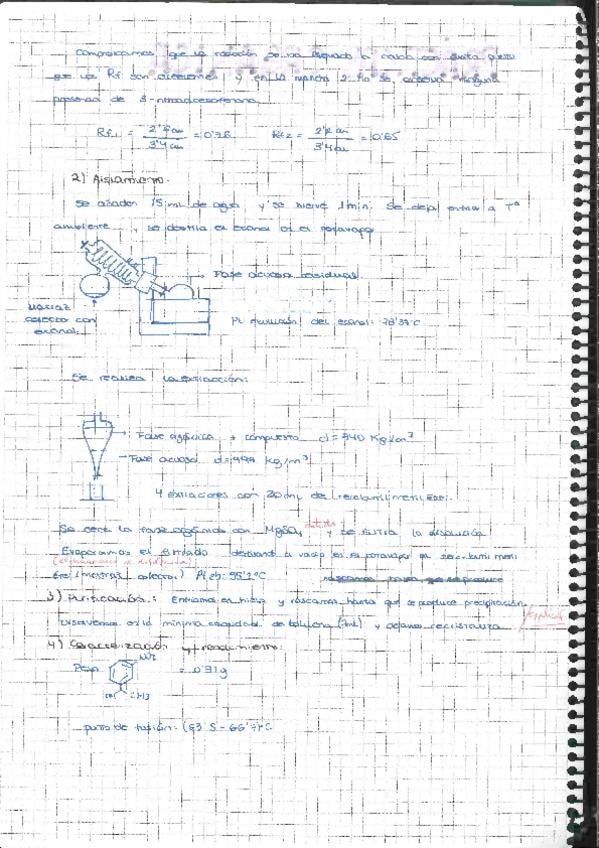 Comprobamos que la reacción se ha llevado a cabo
que los Rf son diferentes y en la mancha 2 no se observa ninguna
presencia de 3-nitroacetofenona
Rf1 = 2'6 cm / 3'4 cm = 0'76 Rf2 = 2'2 cm / 3'4 cm = 0'65
2) Aislamiento.
Se añaden 15 mL de agua y se hierve 1 min. Se deja enfriar a Tª
ambiente, se destila el etanol en el rotavapor
Fase acuosa residual
matraz
colector con
etanol.
Pt ebullición del etanol: 78'37ºC
Se realiza la extracción:
Fase orgánica + compuesto d = 740 Kg/m³
Fase acuosa d = 998 kg/m³
4 extracciones con 20 mL de terc-butil metil éter.
Se seca la fase orgánica con MgSO4 y se filtra la disolución
Evaporamos el filtrado a vacío en el rotavapor el terc-butil metil
éter (matraz colector) Pt eb: 55'2ºC
rascamos hasta que se produce
3) Purificación.: Enfriamos en hielo y rascamos hasta que se produce precipitación.
Disolvemos en la mínima cantidad de tolueno (7mL) y dejamos recristalizar
4) Caracterización y rendimiento:
Peso = 0'31g
NO2
CH3
punto de fusión: (63'5 - 66'7)ºC